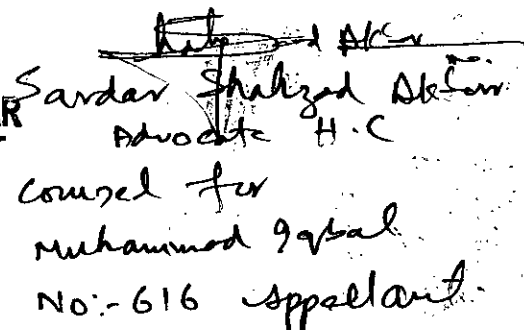 R
Sardar Shahzad
Advocate H.C
Counsel for
Muhammad Iqbal
No:-616 Appellant.